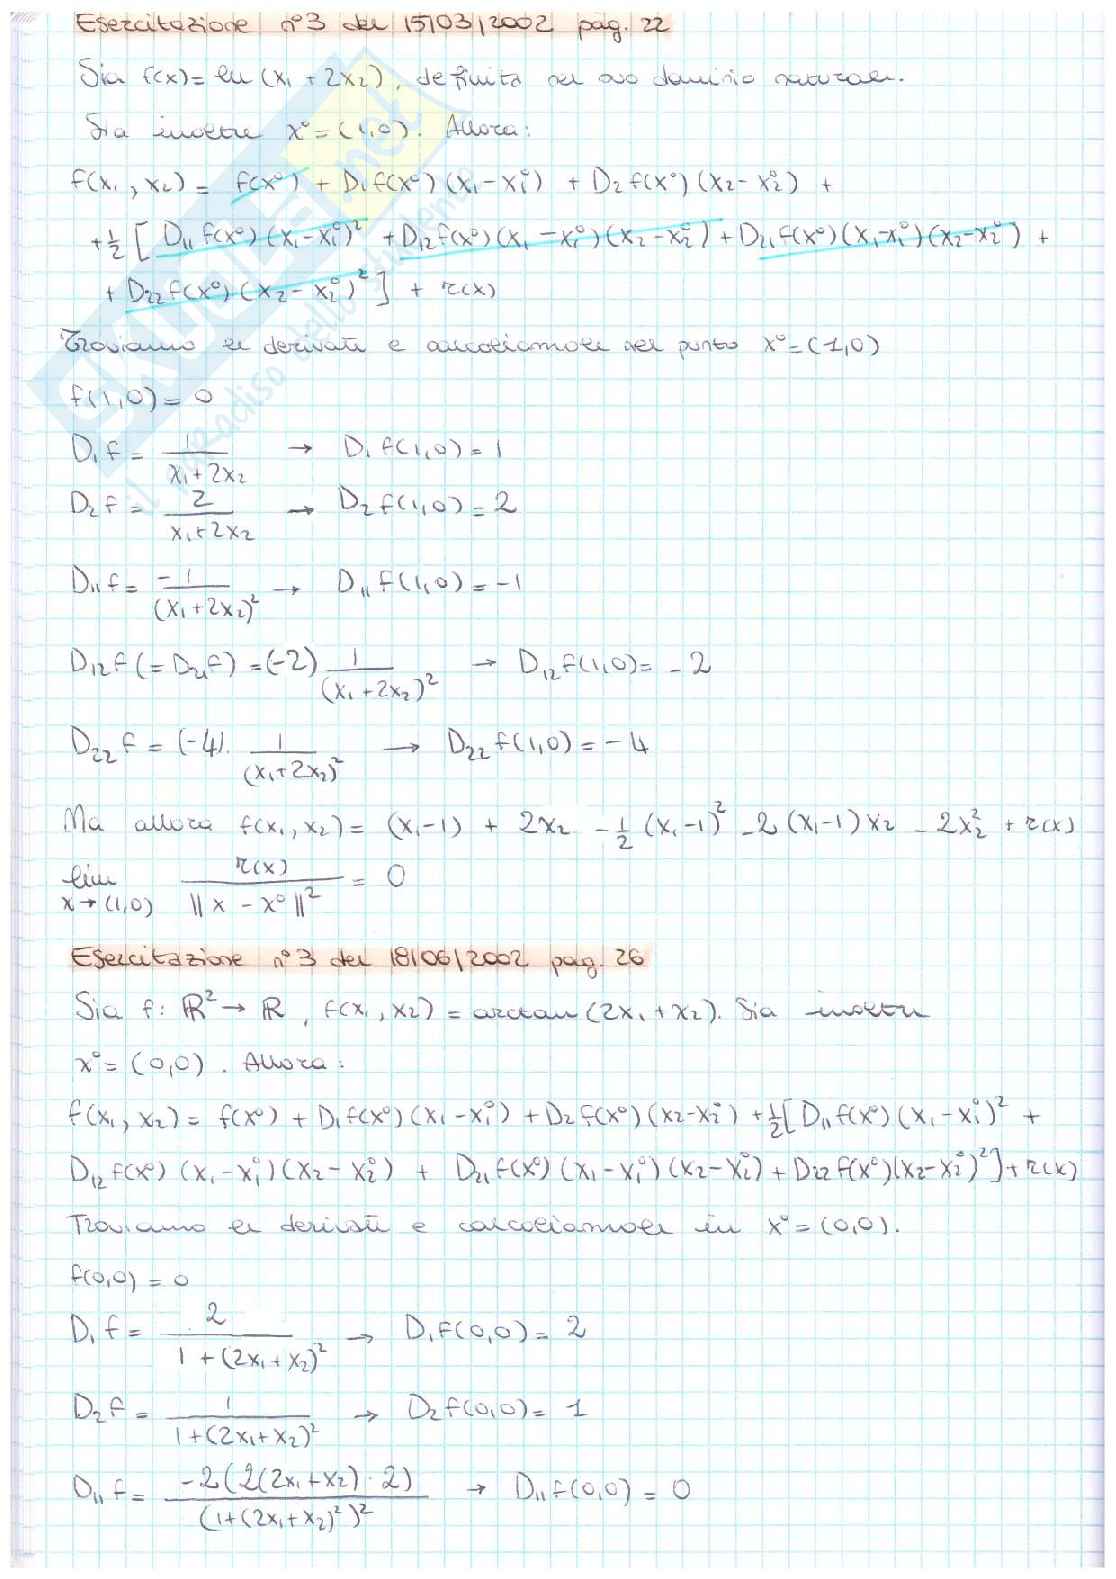 Esercitazione n°3 del 15/03/2002 pag. 22
Sia f(x) = ln (x₁ + 2x₂), definita nel suo dominio naturale.
Sia inoltre x° = (1,0). Allora:
f(x₁, x₂) = f(x°) + D₁f(x°)(x₁-x₁°) + D₂f(x°)(x₂-x₂°) +
+ 1/2 [D₁₁f(x°)(x₁-x₁°)² + D₁₂f(x°)(x₁-x₁°)(x₂-x₂°) + D₂₁f(x°)(x₁-x₁°)(x₂-x₂°) +
+ D₂₂f(x°)(x₂-x₂°)²] + r(x)
Troviamo le derivate e calcoliamole nel punto x° = (1,0)
f(1,0) = 0
D₁f = 1/(x₁+2x₂) → D₁f(1,0) = 1
D₂f = 2/(x₁+2x₂) → D₂f(1,0) = 2
D₁₁f = -1/(x₁+2x₂)² → D₁₁f(1,0) = -1
D₁₂f (= D₂₁f) = (-2) 1/(x₁+2x₂)² → D₁₂f(1,0) = -2
D₂₂f = (-4). 1/(x₁+2x₂)² → D₂₂f(1,0) = -4
Ma allora f(x₁, x₂) = (x₁-1) + 2x₂ - 1/2 (x₁-1)² - 2(x₁-1)x₂ - 2x₂² + r(x)
lim x→(1,0) r(x)/||x - x°||² = 0
Esercitazione n°3 del 18/06/2002 pag. 26
Sia f: ℝ² → ℝ, f(x₁, x₂) = arctan (2x₁ + x₂). Sia inoltre
x° = (0,0). Allora:
f(x₁, x₂) = f(x°) + D₁f(x°)(x₁-x₁°) + D₂f(x°)(x₂-x₂°) + 1/2 [D₁₁f(x°)(x₁-x₁°)² +
D₁₂f(x°)(x₁-x₁°)(x₂-x₂°) + D₂₁f(x°)(x₁-x₁°)(x₂-x₂°) + D₂₂f(x°)(x₂-x₂°)²] + r(x)
Troviamo le derivate e calcoliamole in x° = (0,0).
f(0,0) = 0
D₁f = 2/(1+(2x₁+x₂)²) → D₁f(0,0) = 2
D₂f = 1/(1+(2x₁+x₂)²) → D₂f(0,0) = 1
D₁₁f = -2(2(2x₁+x₂)·2)/(1+(2x₁+x₂)²)² → D₁₁f(0,0) = 0
SKUOLA.net
il paradiso dello studente